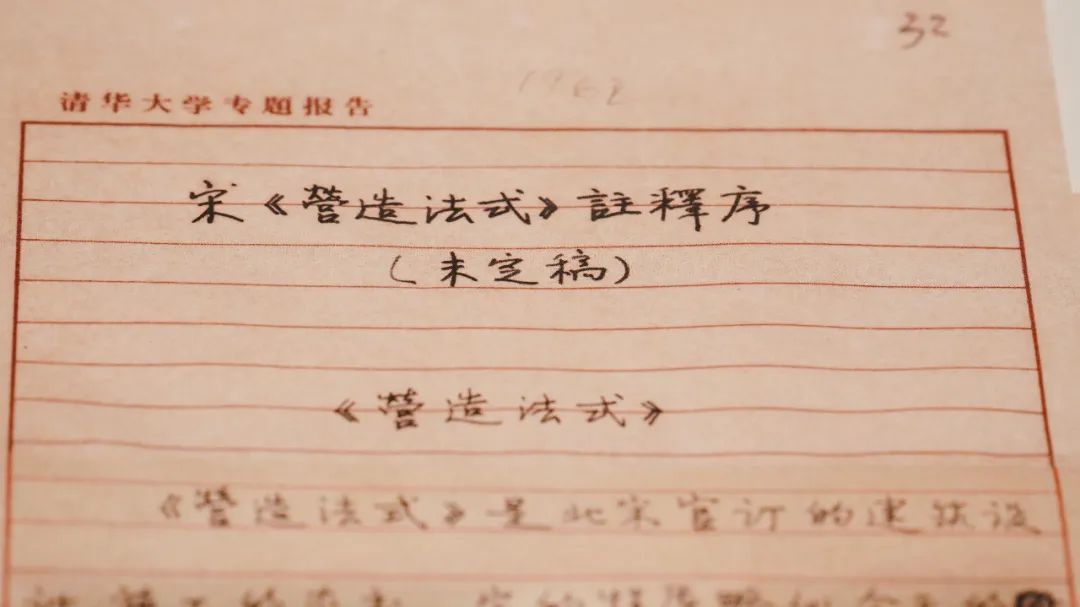 32
1962
清华大学专题报告
宋《營造法式》註釋序
(未定稿)
《營造法式》
《營造法式》是北宋官订的建筑设